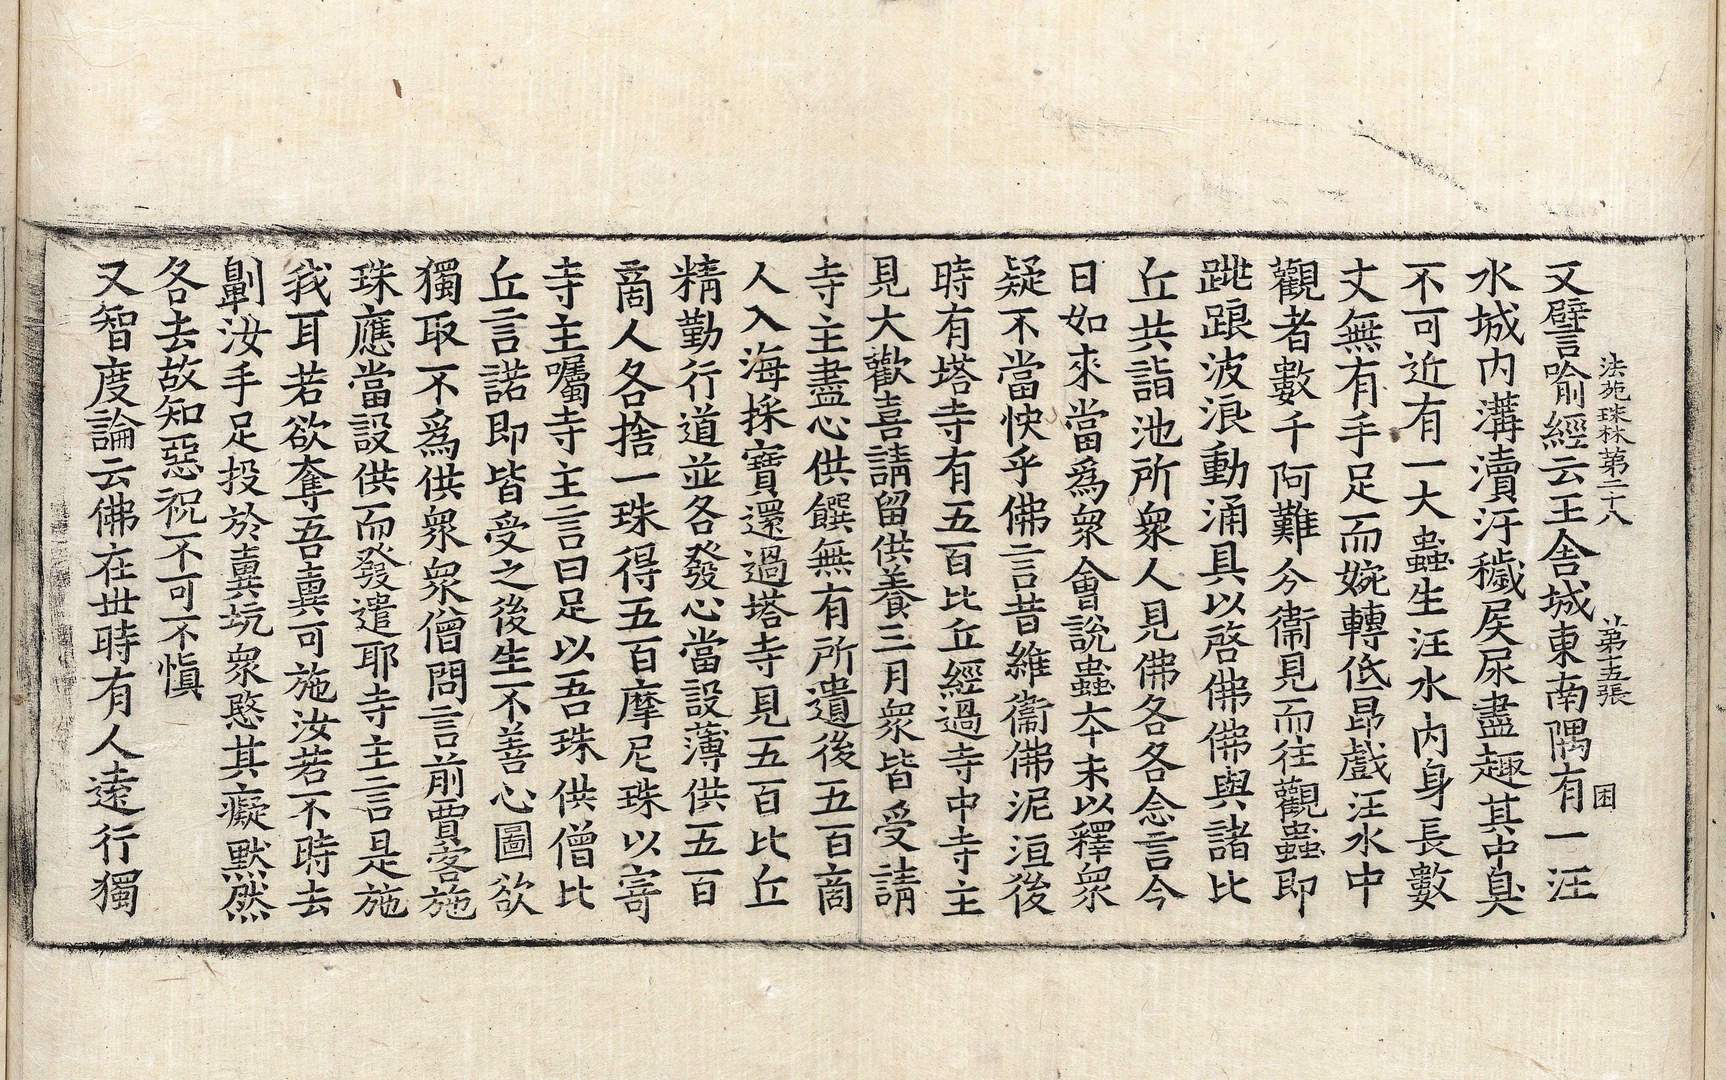 法苑珠林第二十八 第十五張 困
又譬喻經云王舍城東南隅有一汪
水城內溝瀆汙穢屎尿盡趣其中臭
不可近有一大蟲生汪水內身長數
丈無有手足而婉轉低昂戲汪水中
觀者數千阿難分衞見而往觀蟲即
跳踉波浪動涌具以啓佛佛與諸比
丘共詣池所衆人見佛各各念言今
日如來當爲衆會說蟲夲末以釋衆
疑不當快乎佛言昔維衞佛泥洹後
時有塔寺有五百比丘經過寺中寺主
見大歡喜請留供養三月衆皆受請
寺主盡心供饌無有所遺後五百商
人入海採寶還過塔寺見五百比丘
精勤行道並各發心當設薄供五百
商人各捨一珠得五百摩尼珠以寄
寺主囑寺主言曰足以吾珠供僧比
丘言諾即皆受之後生不善心圖欲
獨取不爲供衆衆僧問言前賈客施
珠應當設供而發遣耶寺主言是施
我耳若欲奪吾糞可施汝若不時去
劓汝手足投於糞坑衆愍其癡默然
各去故知惡祝不可不愼
又智度論云佛在世時有人遠行獨